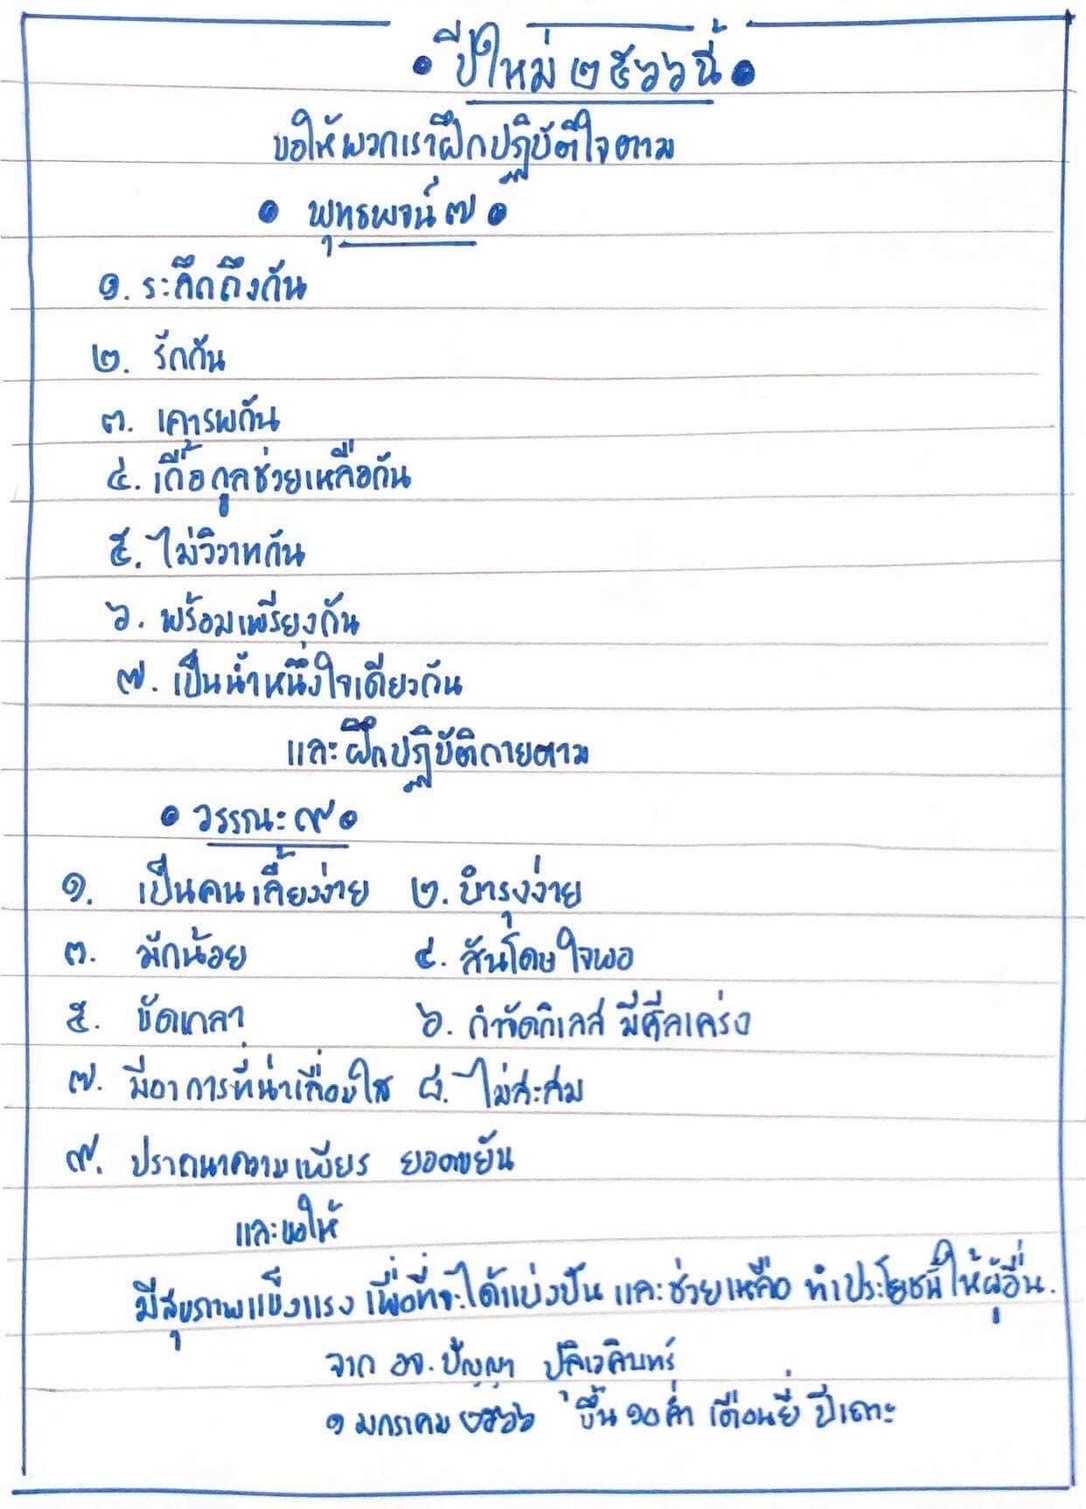 • ปีใหม่ ๒๕๖๖ นี้ •
ขอให้พวกเราฝึกปฏิบัติใจตาม
• พุทธพจน์ ๗ •
๑. ระลึกถึงกัน
๒. รักกัน
๓. เคารพกัน
๔. เกื้อกูลช่วยเหลือกัน
๕. ไม่วิวาทกัน
๖. พร้อมเพรียงกัน
๗. เป็นน้ำหนึ่งใจเดียวกัน
และฝึกปฏิบัติกายตาม
• วรรณะ ๙ •
๑. เป็นคนเลี้ยงง่าย ๒. บำรุงง่าย
๓. มักน้อย ๔. สันโดษ ใจพอ
๕. ขัดเกลา ๖. กำจัดกิเลส มีศีลเคร่ง
๗. มีอาการที่น่าเลื่อมใส ๘. ไม่สะสม
๙. ปรารถนาความเพียร ยอดขยัน
และขอให้
มีสุขภาพแข็งแรง เพื่อที่จะได้แบ่งปัน และช่วยเหลือ ทำประโยชน์ให้ผู้อื่น.
จาก อจ. ปัญญา ปุลิเวคินทร์
๑ มกราคม ๒๕๖๖ ขึ้น ๑๐ ค่ำ เดือนยี่ ปีเถาะ